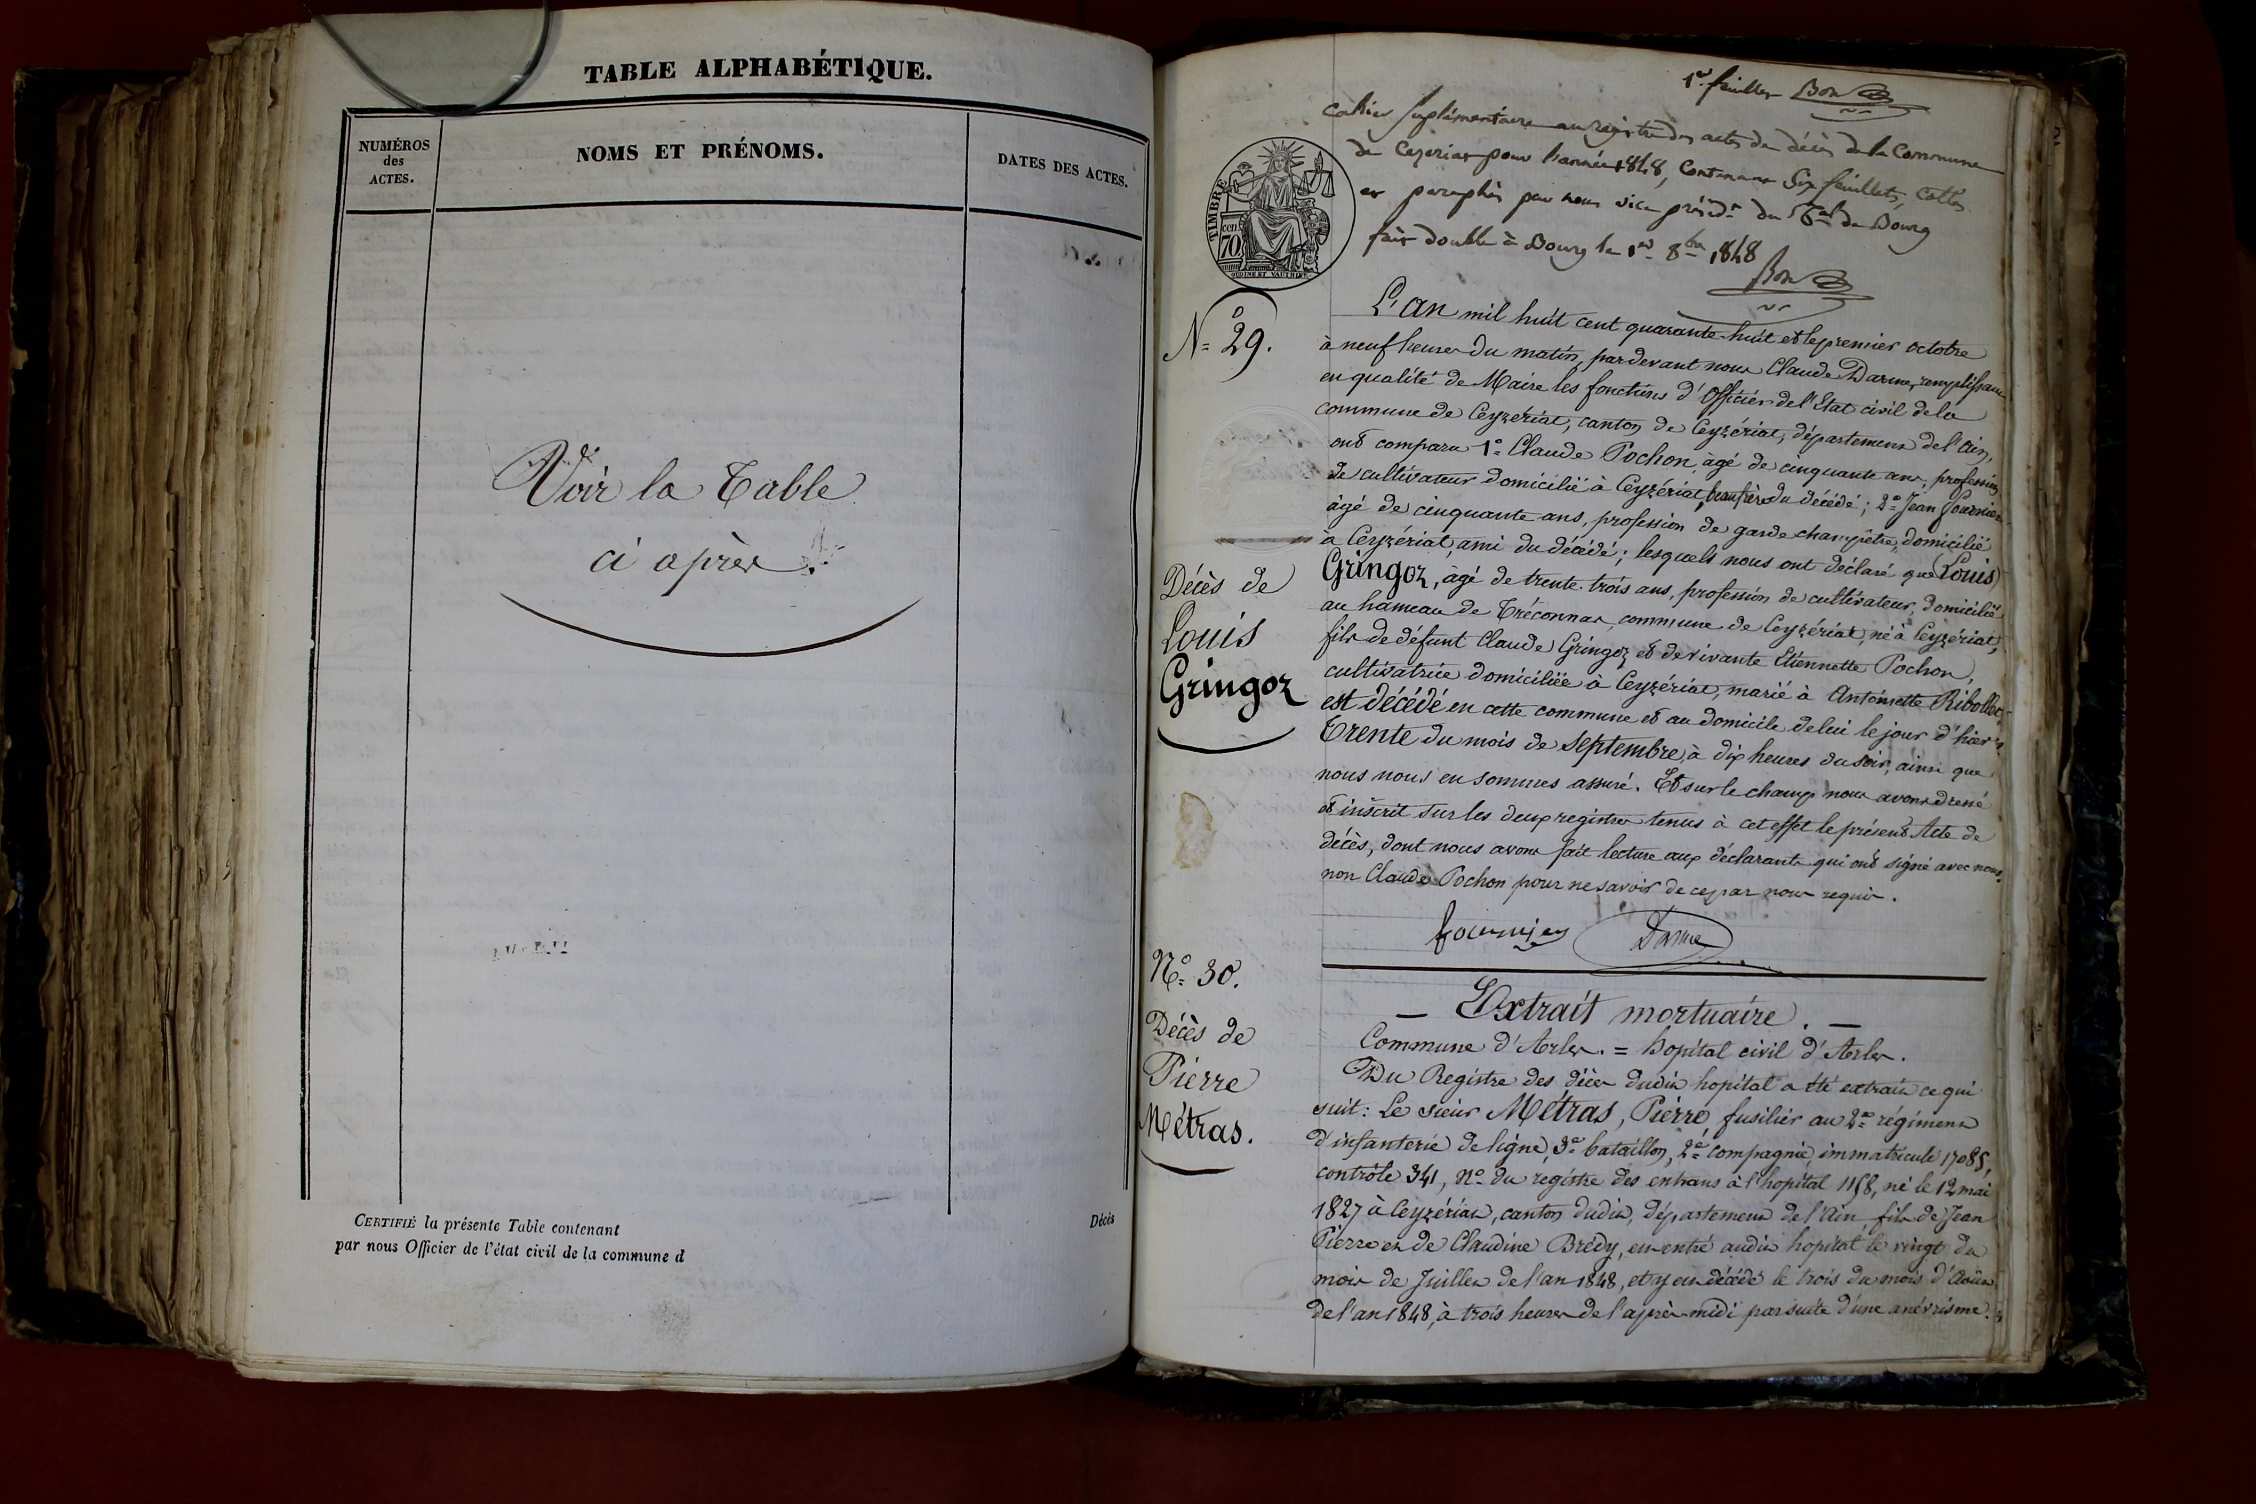 TABLE ALPHABÉTIQUE.
NUMÉROS
des
ACTES.
NOMS ET PRÉNOMS.
DATES DES ACTES.
Voir la Table
ci après
CERTIFIÉ la présente Table contenant
par nous Officier de l'état civil de la commune d
Décès
1er feuillet Bon
Cahier suplémentaire au registre des actes de décès de la Commune
de Ceyzeriat pour l'année 1848, contenant Six feuillets, cottés
et paraphés par nous vice présidt du Tal de Bourg
fait double à Bourg le 1er 8bre 1848
Bon
TIMBRE
cen.
70
No 29.
L'an mil huit cent quarante-huit et le premier octobre
à neuf heures du matin, pardevant nous Claude Darme, remplissant
en qualité de Maire les fonctions d'Officier de l'Etat civil de la
commune de Ceyzériat, canton de Ceyzériat, département de l'ain,
ont comparu 1o Claude Pochon, âgé de cinquante ans, profession
de cultivateur domicilié à Ceyzériat, beaufrère du décédé; 2o Jean Fournier
âgé de cinquante ans, profession de garde champêtre, domicilié
à Ceyzériat, ami du décédé; lesquels nous ont déclaré que Louis
Gringoz, âgé de trente-trois ans, profession de cultivateur, domicilié
au hameau de Tréconnas, commune de Ceyzériat, né à Ceyzériat,
fils de défunt Claude Gringoz et de vivante Etiennette Pochon,
cultivatrice domiciliée à Ceyzériat, marié à Antoinette Ribollet
est décédé en cette commune et au domicile de lui le jour d'hier
Trente du mois de Septembre, à dix heures du soir, ainsi que
nous nous en sommes assuré. Et sur le champ nous avons dressé
et inscrit sur les deux registres tenus à cet effet le présent Acte de
décès, dont nous avons fait lecture aux déclarants qui ont signé avec nous,
non Claude Pochon pour ne savoir de ce par nous requis.
Fournier Darme
Décès de
Louis
Gringoz
No 30.
Décès de
Pierre
Métras.
— Extrait mortuaire. —
Commune d'Arles. = hopital civil d'Arles.
Du Registre des décès dudit hopital a été extrait ce qui
suit: Le sieur Métras, Pierre, fusilier au 2me régiment
d'infanterie de ligne, 3e bataillon, 2e compagnie, immatricule 17085,
contrôle 341, No du registre des entrans à l'hopital 1158, né le 12 mai
1827 à Ceyzériat, canton dudit, département de l'Ain, fils de Jean
Pierre et de Claudine Brédy, est entré audit hopital le vingt du
mois de Juillet de l'an 1848, et y est décédé le trois du mois d'Août
de l'an 1848, à trois heures de l'après-midi par suite d'une anévrisme.